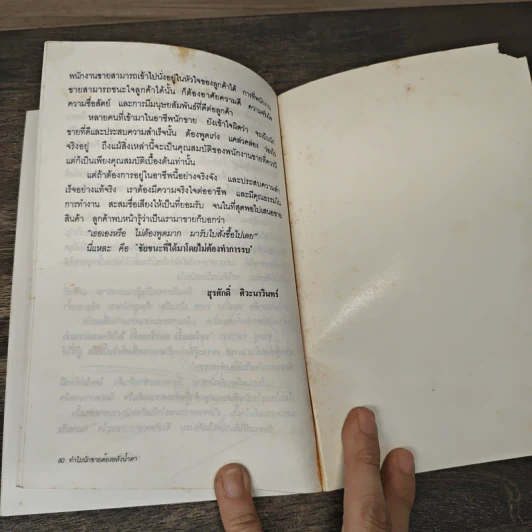 พนักงานขายสามารถเข้าไปนั่งอยู่ในหัวใจของลูกค้าได้ การที่พนักงาน
ขายสามารถชนะใจลูกค้าได้นั้น ก็ต้องอาศัยความดี ความจริงใจ
ความซื่อสัตย์ และการมีมนุษยสัมพันธ์ที่ดีต่อลูกค้า
หลายคนที่เข้ามาในอาชีพนักขาย ยังเข้าใจผิดว่า จะเป็นนัก
ขายที่ดีและประสบความสำเร็จนั้น ต้องพูดเก่ง แคล่วคล่อง ว่องไว
จริงอยู่ ถึงแม้สิ่งเหล่านี้จะเป็นคุณสมบัติของพนักงานขายที่ควรมี
แต่ก็เป็นเพียงคุณสมบัติเบื้องต้นเท่านั้น
แต่ถ้าต้องการอยู่ในอาชีพนี้อย่างจริงจัง และประสบความสำ
เร็จอย่างแท้จริง เราต้องมีความจริงใจต่ออาชีพ และมีคุณธรรมใน
การทำงาน สะสมชื่อเสียงให้เป็นที่ยอมรับ จนในที่สุดพอไปเสนอขาย
สินค้า ลูกค้าพบหน้ารู้ว่าเป็นเรามาขายก็บอกว่า
"เธอเองหรือ ไม่ต้องพูดมาก มารับใบสั่งซื้อไปเลย"
นี่แหละ คือ "ชัยชนะที่ได้มาโดยไม่ต้องทำการรบ"
สุรศักดิ์ ศิวะนาวินทร์
60 ทำไมนักขายต้องหลั่งน้ำตา